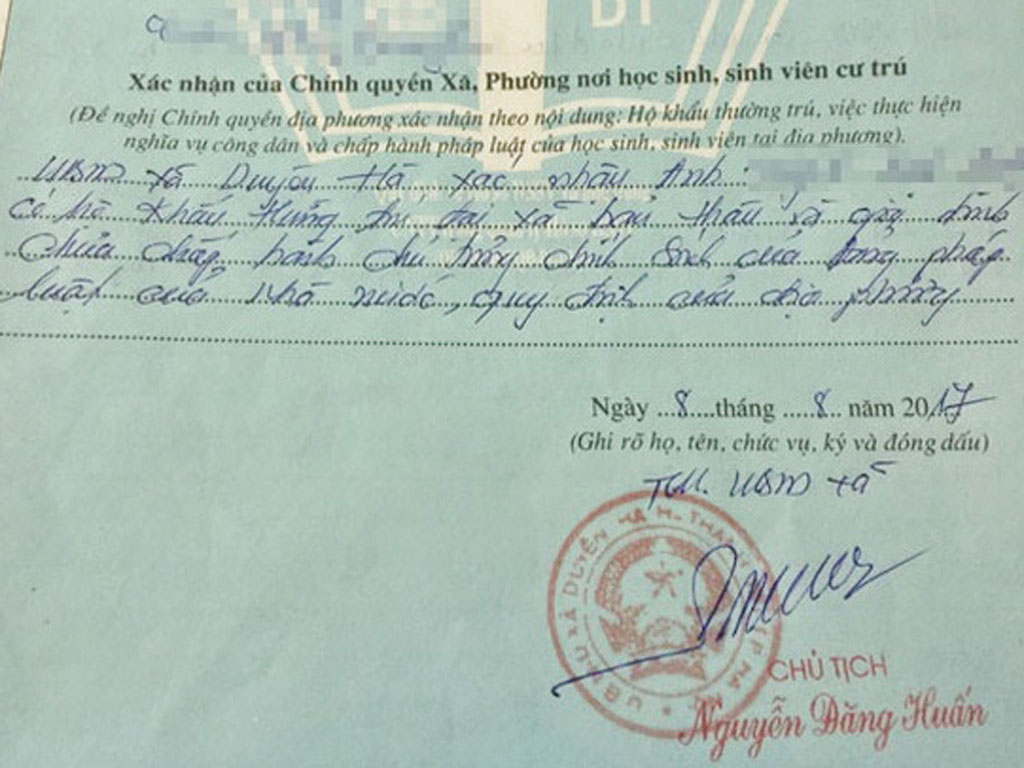 ĐT
Xác nhận của Chính quyền Xã, Phường nơi học sinh, sinh viên cư trú
(Đề nghị Chính quyền địa phương xác nhận theo nội dung: Hộ khẩu thường trú, việc thực hiện
nghĩa vụ công dân và chấp hành pháp luật của học sinh, sinh viên tại địa phương).
UBND xã Duyên Hà xác nhận Anh:
Có hộ khẩu thường trú tại xã bản thân và gia đình
Chưa chấp hành chủ trương chính sách của Đảng pháp
luật của nhà nước, quy định của địa phương
Ngày 8 tháng 8 năm 2017
(Ghi rõ họ, tên, chức vụ, ký và đóng dấu)
TM. UBND xã
U.B.N.D XÃ DUYÊN HÀ H. THANH TP HÀ
CHỦ TỊCH
Nguyễn Đăng Huấn